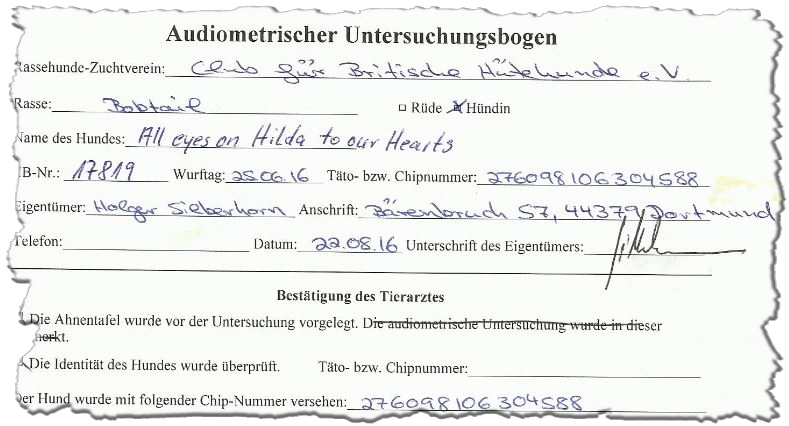 Audiometrischer Untersuchungsbogen
Rassehunde-Zuchtverein: Club für Britische Hütehunde e.V.
Rasse: Bobtail □ Rüde ☒ Hündin
Name des Hundes: All eyes on Hilda to our Hearts
B-Nr.: 17819 Wurftag: 25.06.16 Täto- bzw. Chipnummer: 276098106304588
Eigentümer: Holger Sieberhorn Anschrift: Bärenbruch 57, 44379 Dortmund
Telefon: Datum: 22.08.16 Unterschrift des Eigentümers:
Bestätigung des Tierarztes
Die Ahnentafel wurde vor der Untersuchung vorgelegt. Die audiometrische Untersuchung wurde in dieser
merkt.
Die Identität des Hundes wurde überprüft. Täto- bzw. Chipnummer:
er Hund wurde mit folgender Chip-Nummer versehen: 276098106304588